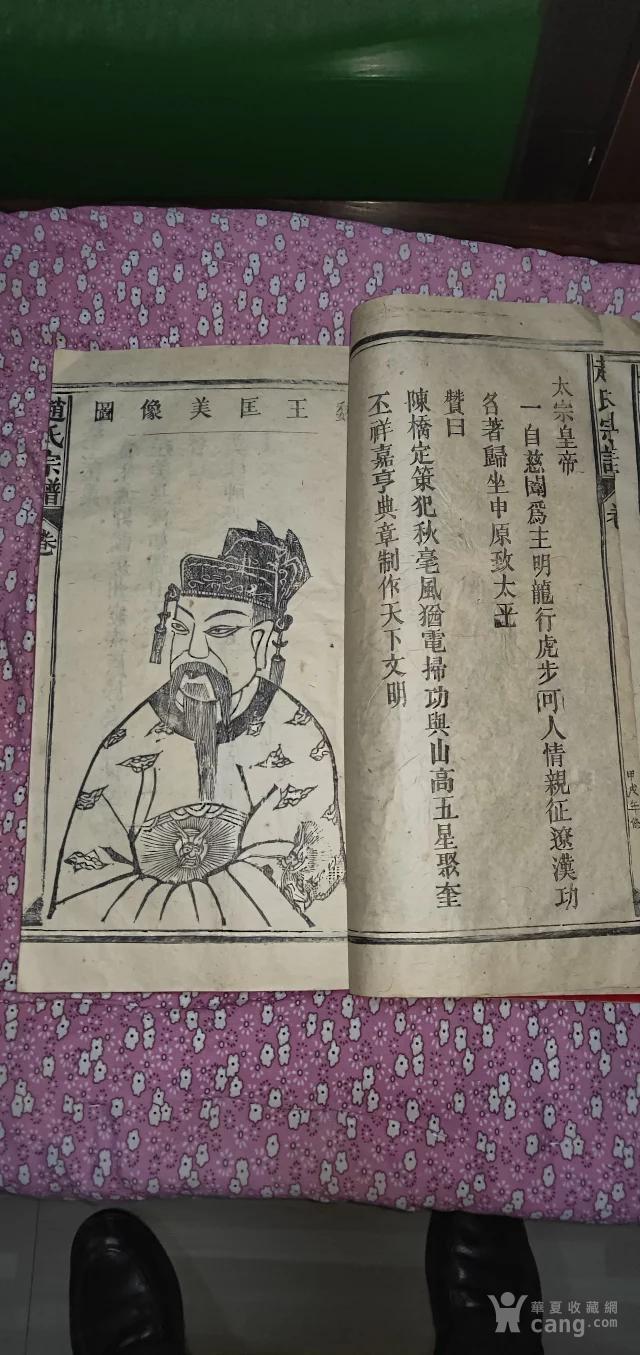 太宗皇帝
一自慈闈爲主明龍行虎步可人情親征遼漢功
名著歸坐中原致太平
贊曰
陳橋定策犯秋毫風猶電掃功與山高五星聚奎
丕祥嘉亨典章制作天下文明
趙氏宗譜
卷
甲戌年修
王匡美像圖
趙氏宗譜
卷
華夏收藏網
cang.com